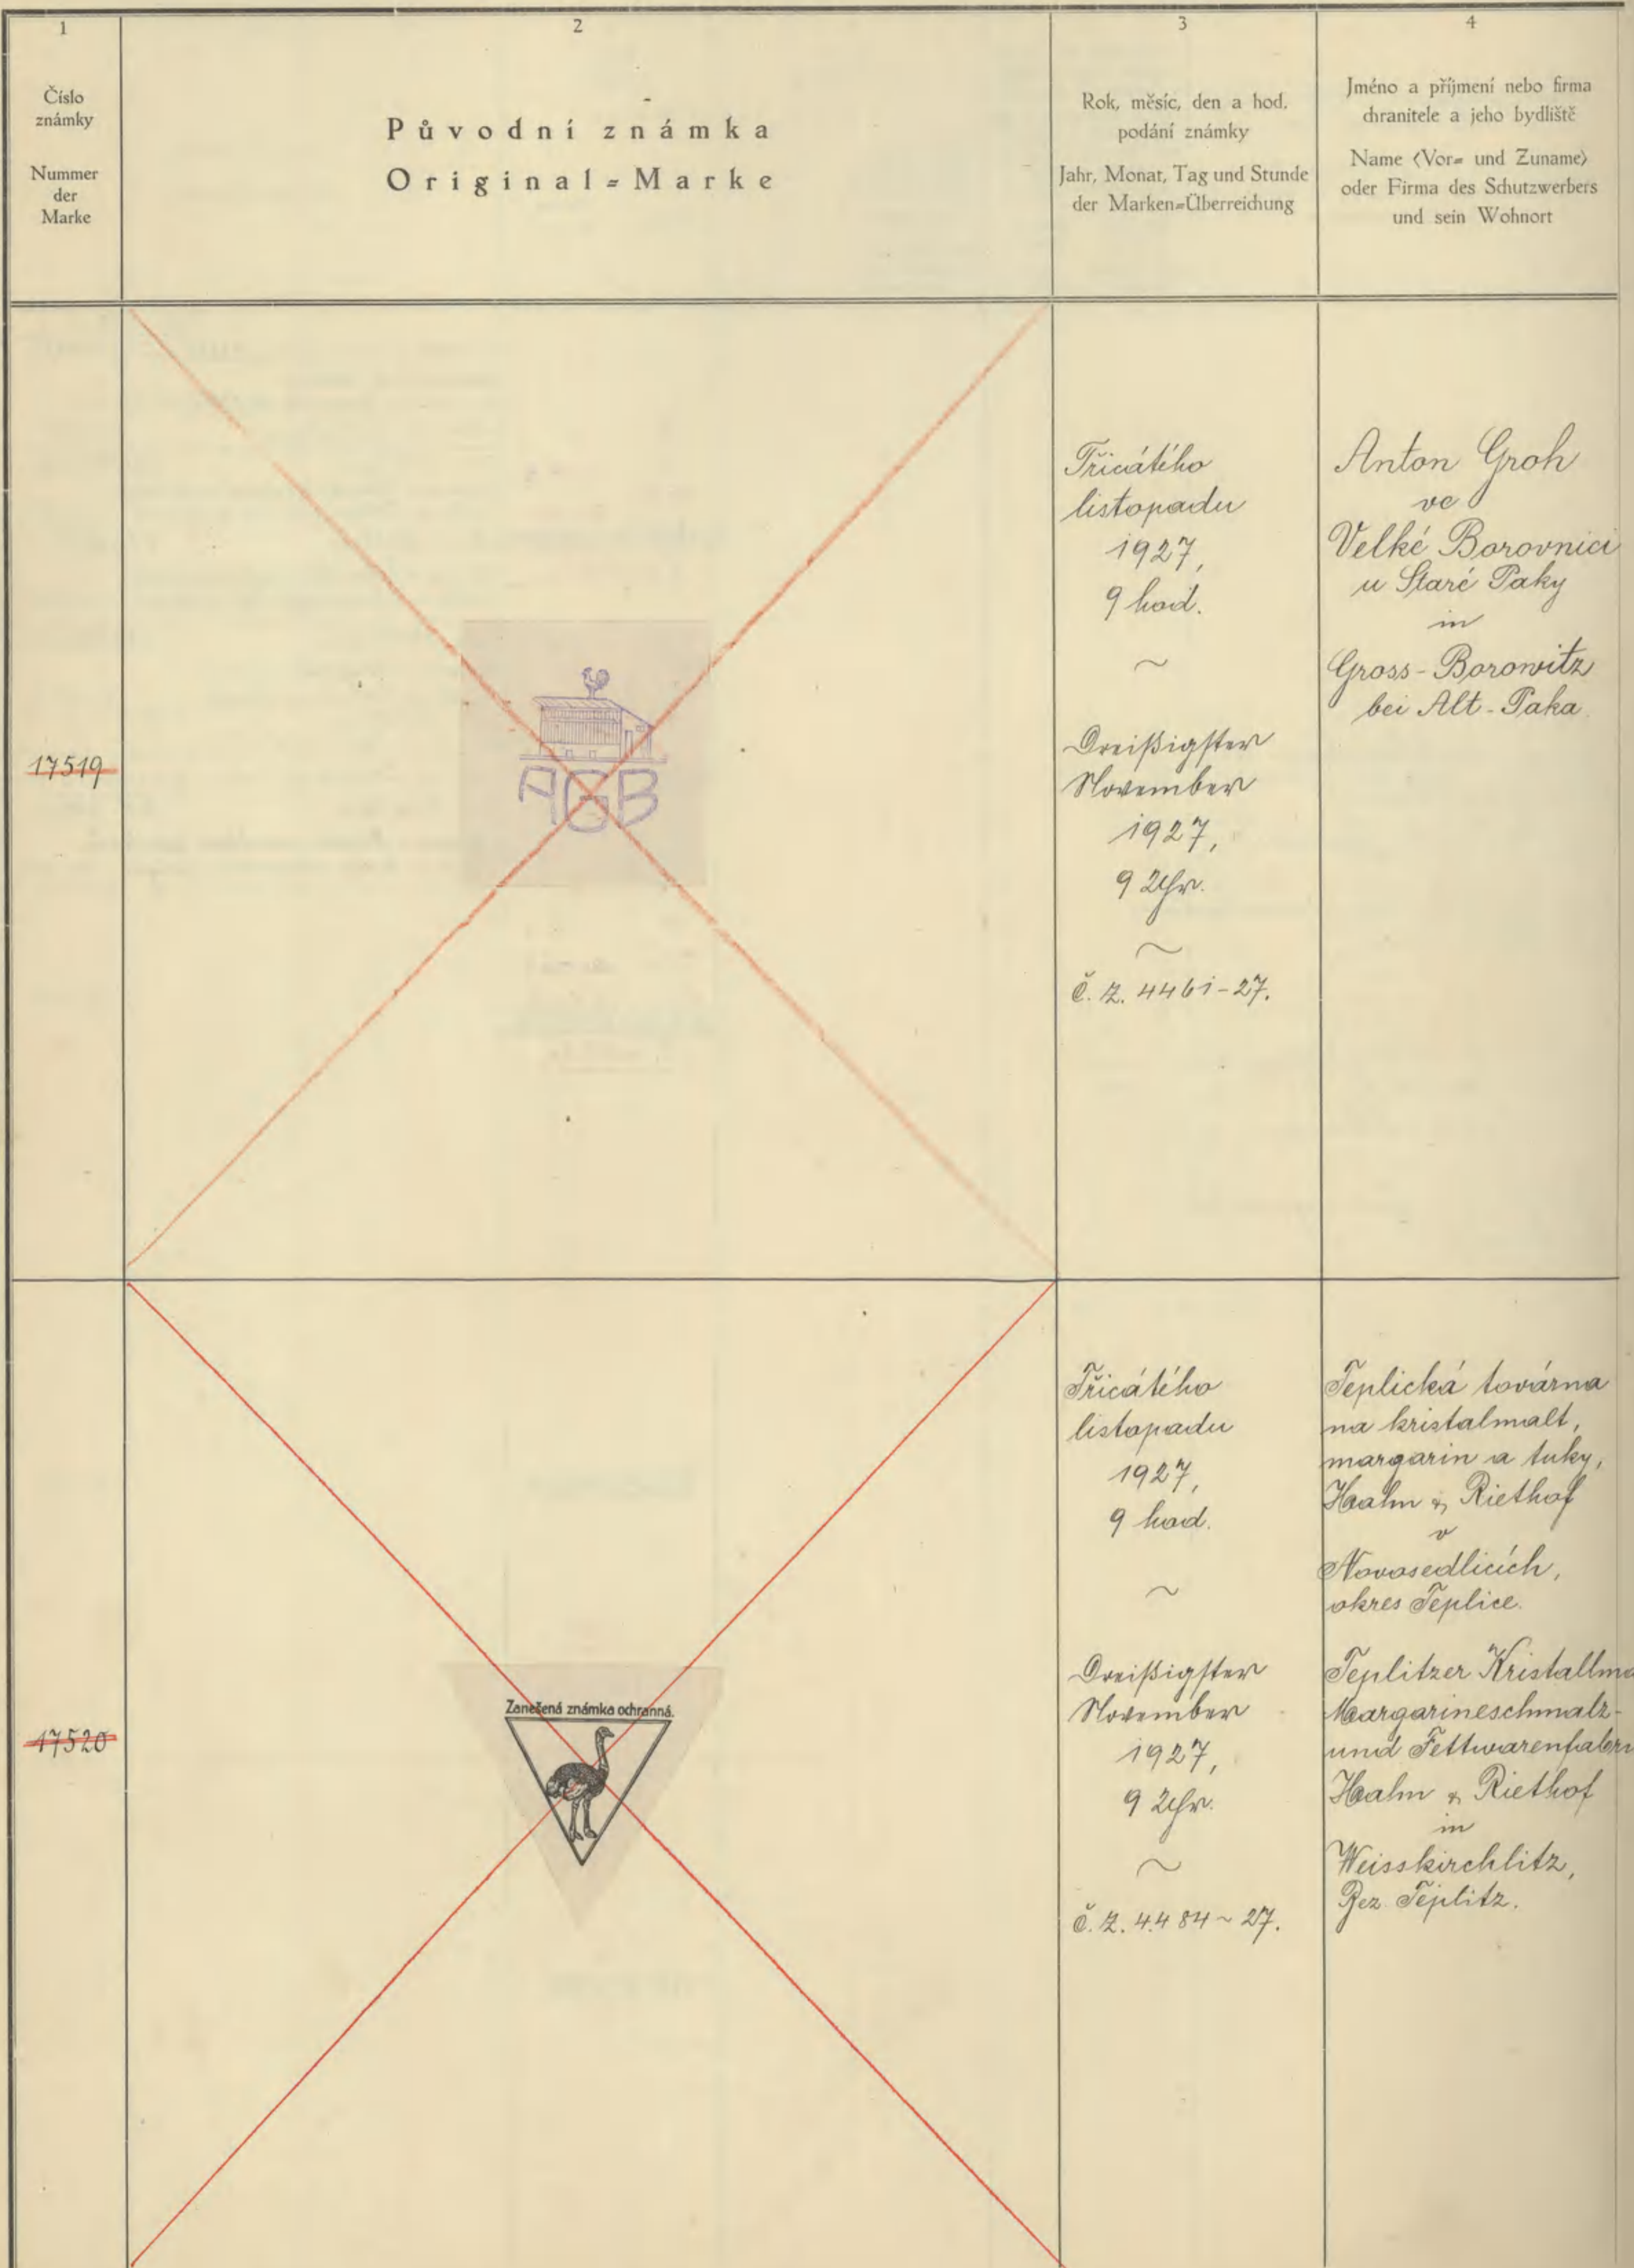 1
Číslo
známky
Nummer
der
Marke
2
Původní známka
Original=Marke
3
Rok, měsíc, den a hod.
podání známky
Jahr, Monat, Tag und Stunde
der Marken=Überreichung
4
Jméno a příjmení nebo firma
chranitele a jeho bydliště
Name (Vor= und Zuname)
oder Firma des Schutzwerbers
und sein Wohnort
17519
AGB
Třicátého
listopadu
1927,
9 hod.
~
Dreißigster
November
1927,
9 Uhr.
~
č. z. 4461-27.
Anton Groh
ve
Velké Borovnici
u Staré Paky
in
Gross-Borowitz
bei Alt-Paka
17520
Zanešená známka ochranná.
Třicátého
listopadu
1927,
9 hod.
~
Dreißigster
November
1927,
9 Uhr.
~
č. z. 4484~27.
Teplická továrna
na kristalmalt,
margarin a tuky,
Haahn & Riethof
v
Novosedlicích,
okres Teplice.
Teplitzer Kristallma
Margarineschmalz-
und Fettwarenfabri
Haahn & Riethof
in
Weisskirchlitz,
Bez. Teplitz.